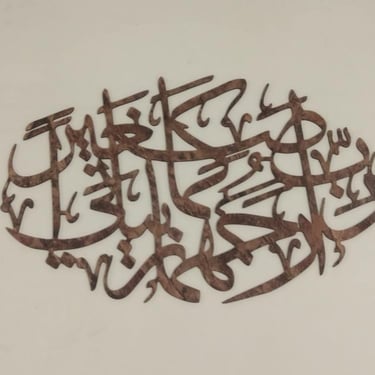 رب ارحمهما كما ربياني صغيرا